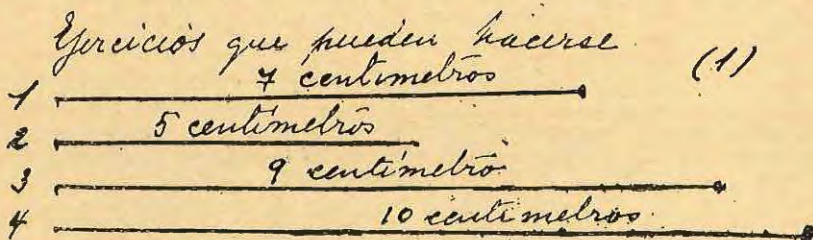 Ejercicios que pueden hacerse (1)
1 7 centimetros
2 5 centimetros
3 9 centimetro
4 10 centimetros